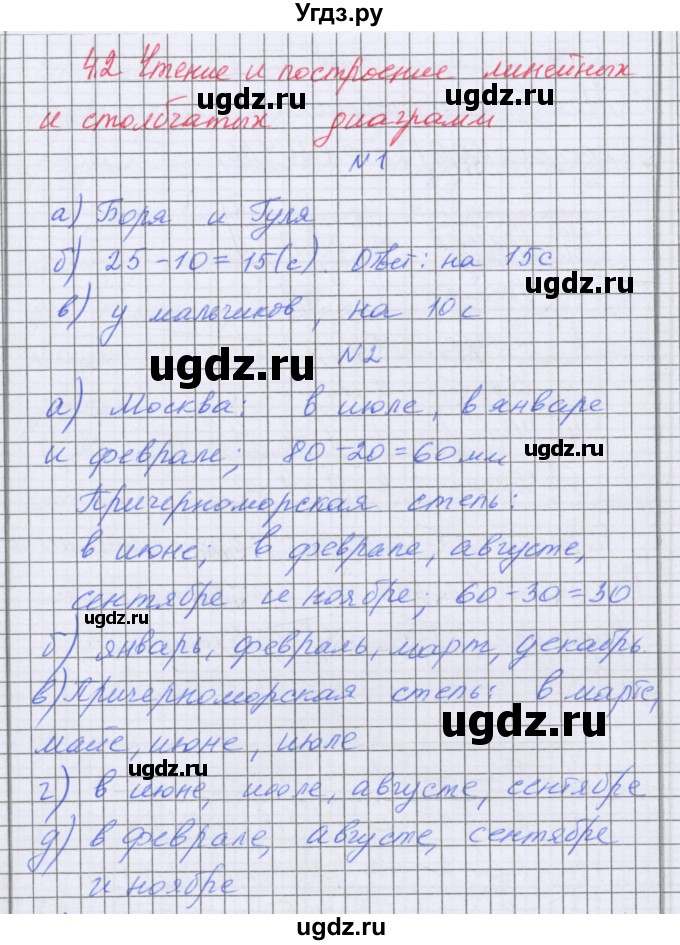 Угдз.ру
42 Чтение и построение линейных
ugdz.ru
и столбчатых диаграмм
ugdz.ru
№1
а) Боря и Гуля
б) 25-10=15(с). Ответ: на 15с
ugdz.ru
в) у мальчиков, на 10с
ugdz.ru
№2
а) Москва: в июле, в январе
и феврале; 80-20=60мм
ugdz.ru
Причерноморская степь:
в июне; в феврале, августе,
сентябре и ноябре; 60-30=30
ugdz.ru
б) январь, февраль, март, декабрь.
в) Причерноморская степь: в марте,
ugdz.ru
мае, июне, июле
ugdz.ru
г) в июне, июле, августе, сентябре
д) в феврале, августе, сентябре
ugdz.ru
и ноябре
ugdz.ru